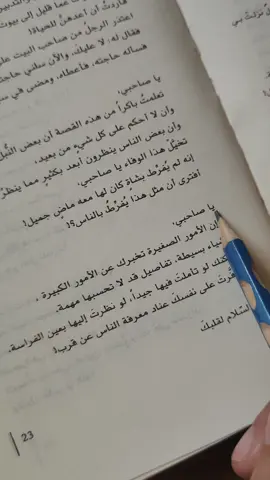 فأردتُ أن أعدهنّ للحياة!
اعتذر الرجلُ من صاحب البيت على
فقال له: لا عليك، والآن سلني حاجتك
فسأله حاجته، فأعطاه، ومضى في
يا صاحبي،
تعلمتُ باكراً من هذه القصة أن بعض النُّبل
وأن لا أحكم على كل شيءٍ من بعيد،
وأن بعض الناس ينظرون أبعد بكثيرٍ مما ينظر
تخيَّل هذا الوفاء يا صاحبي،
إنه لم يُفرِّط بشاةٍ كان لها معه ماضٍ جميل!
أفترى أن مثل هذا يُفرِّطُ بالناس؟!
يا صاحبي،
أن الأمور الصغيرة تخبرك عن الأمور الكبيرة،
أشياء بسيطة، تفاصيل قد لا تحسبها مهمة،
لو تأملتَ فيها جيداً، لو نظرتَ إليها بعين الفراسة،
على نفسكَ عناد معرفة الناس عن قرب!
السّلام لقلبكَ
23